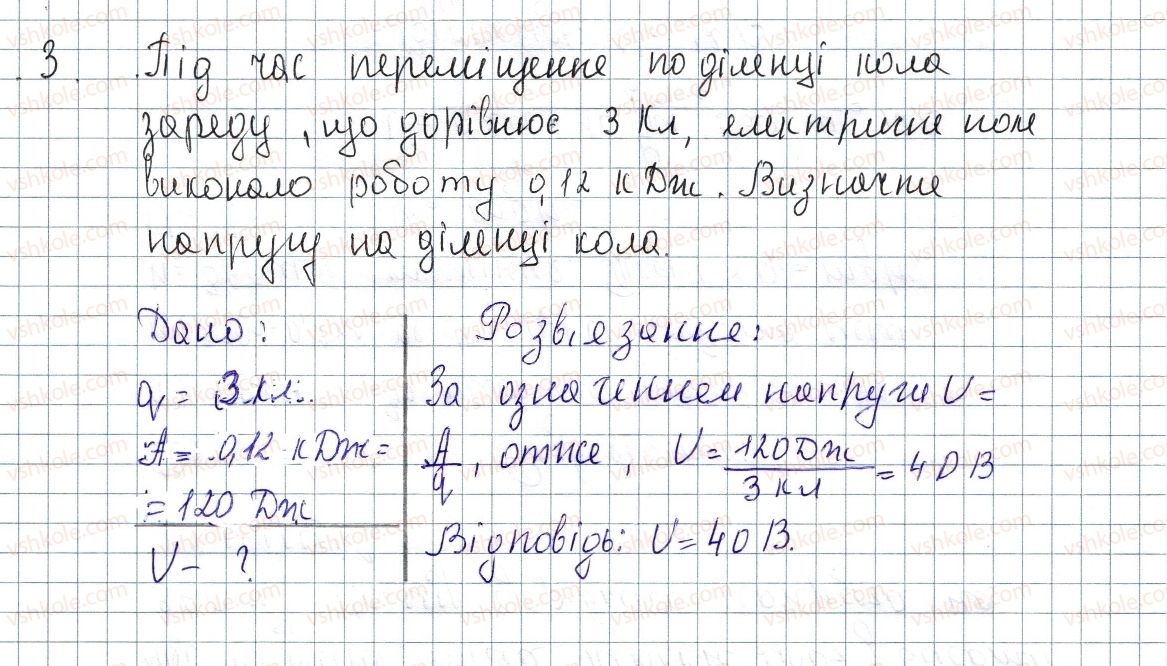 3. Під час переміщення по ділянці кола
заряду, що дорівнює 3 Кл, електричне поле
виконало роботу 0,12 кДж. Визначте
напругу на ділянці кола.
Дано:
q = 3 Кл.
A = 0,12 кДж =
= 120 Дж
U - ?
Розв'язання:
За означенням напруги U =
A/q, отже, U = 120 Дж / 3 Кл = 40 В
Відповідь: U = 40 В.